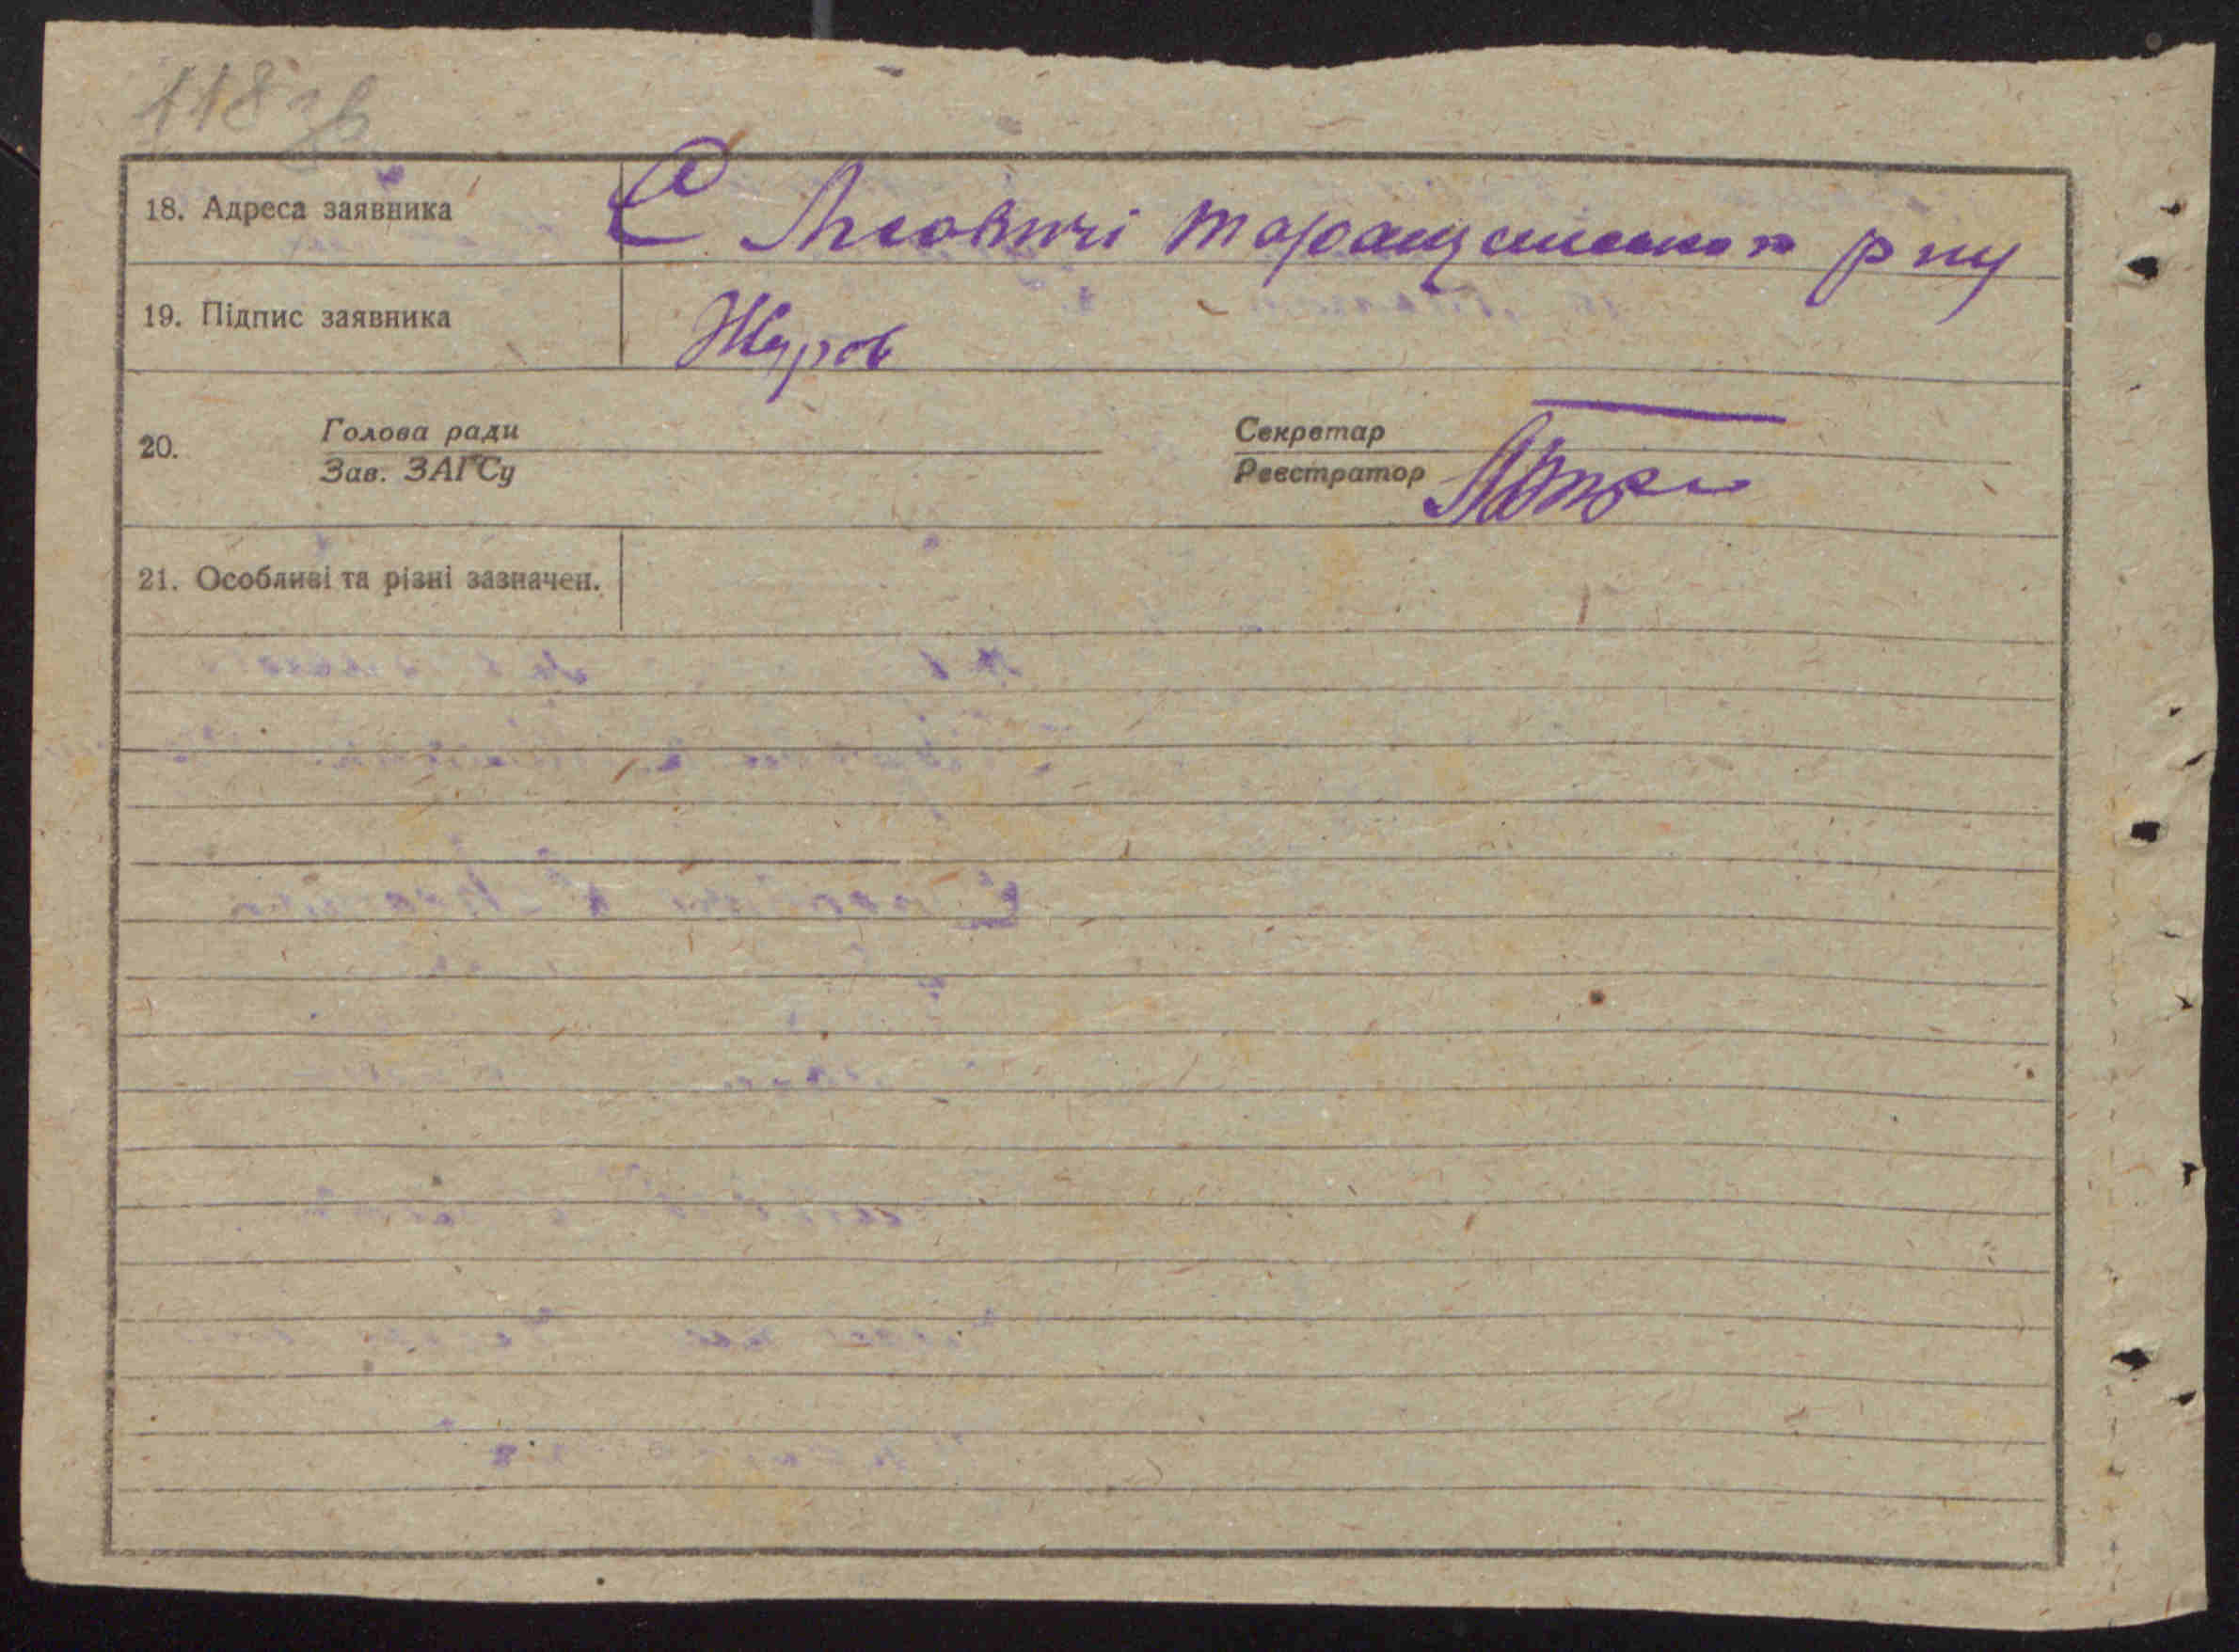 118 зв
18. Адреса заявника С Лісовичі таращанського р ну
19. Підпис заявника Журов
20. Голова ради Секретар
Зав. ЗАГСу Реєстратор
21. Особливі та різні зазначен.